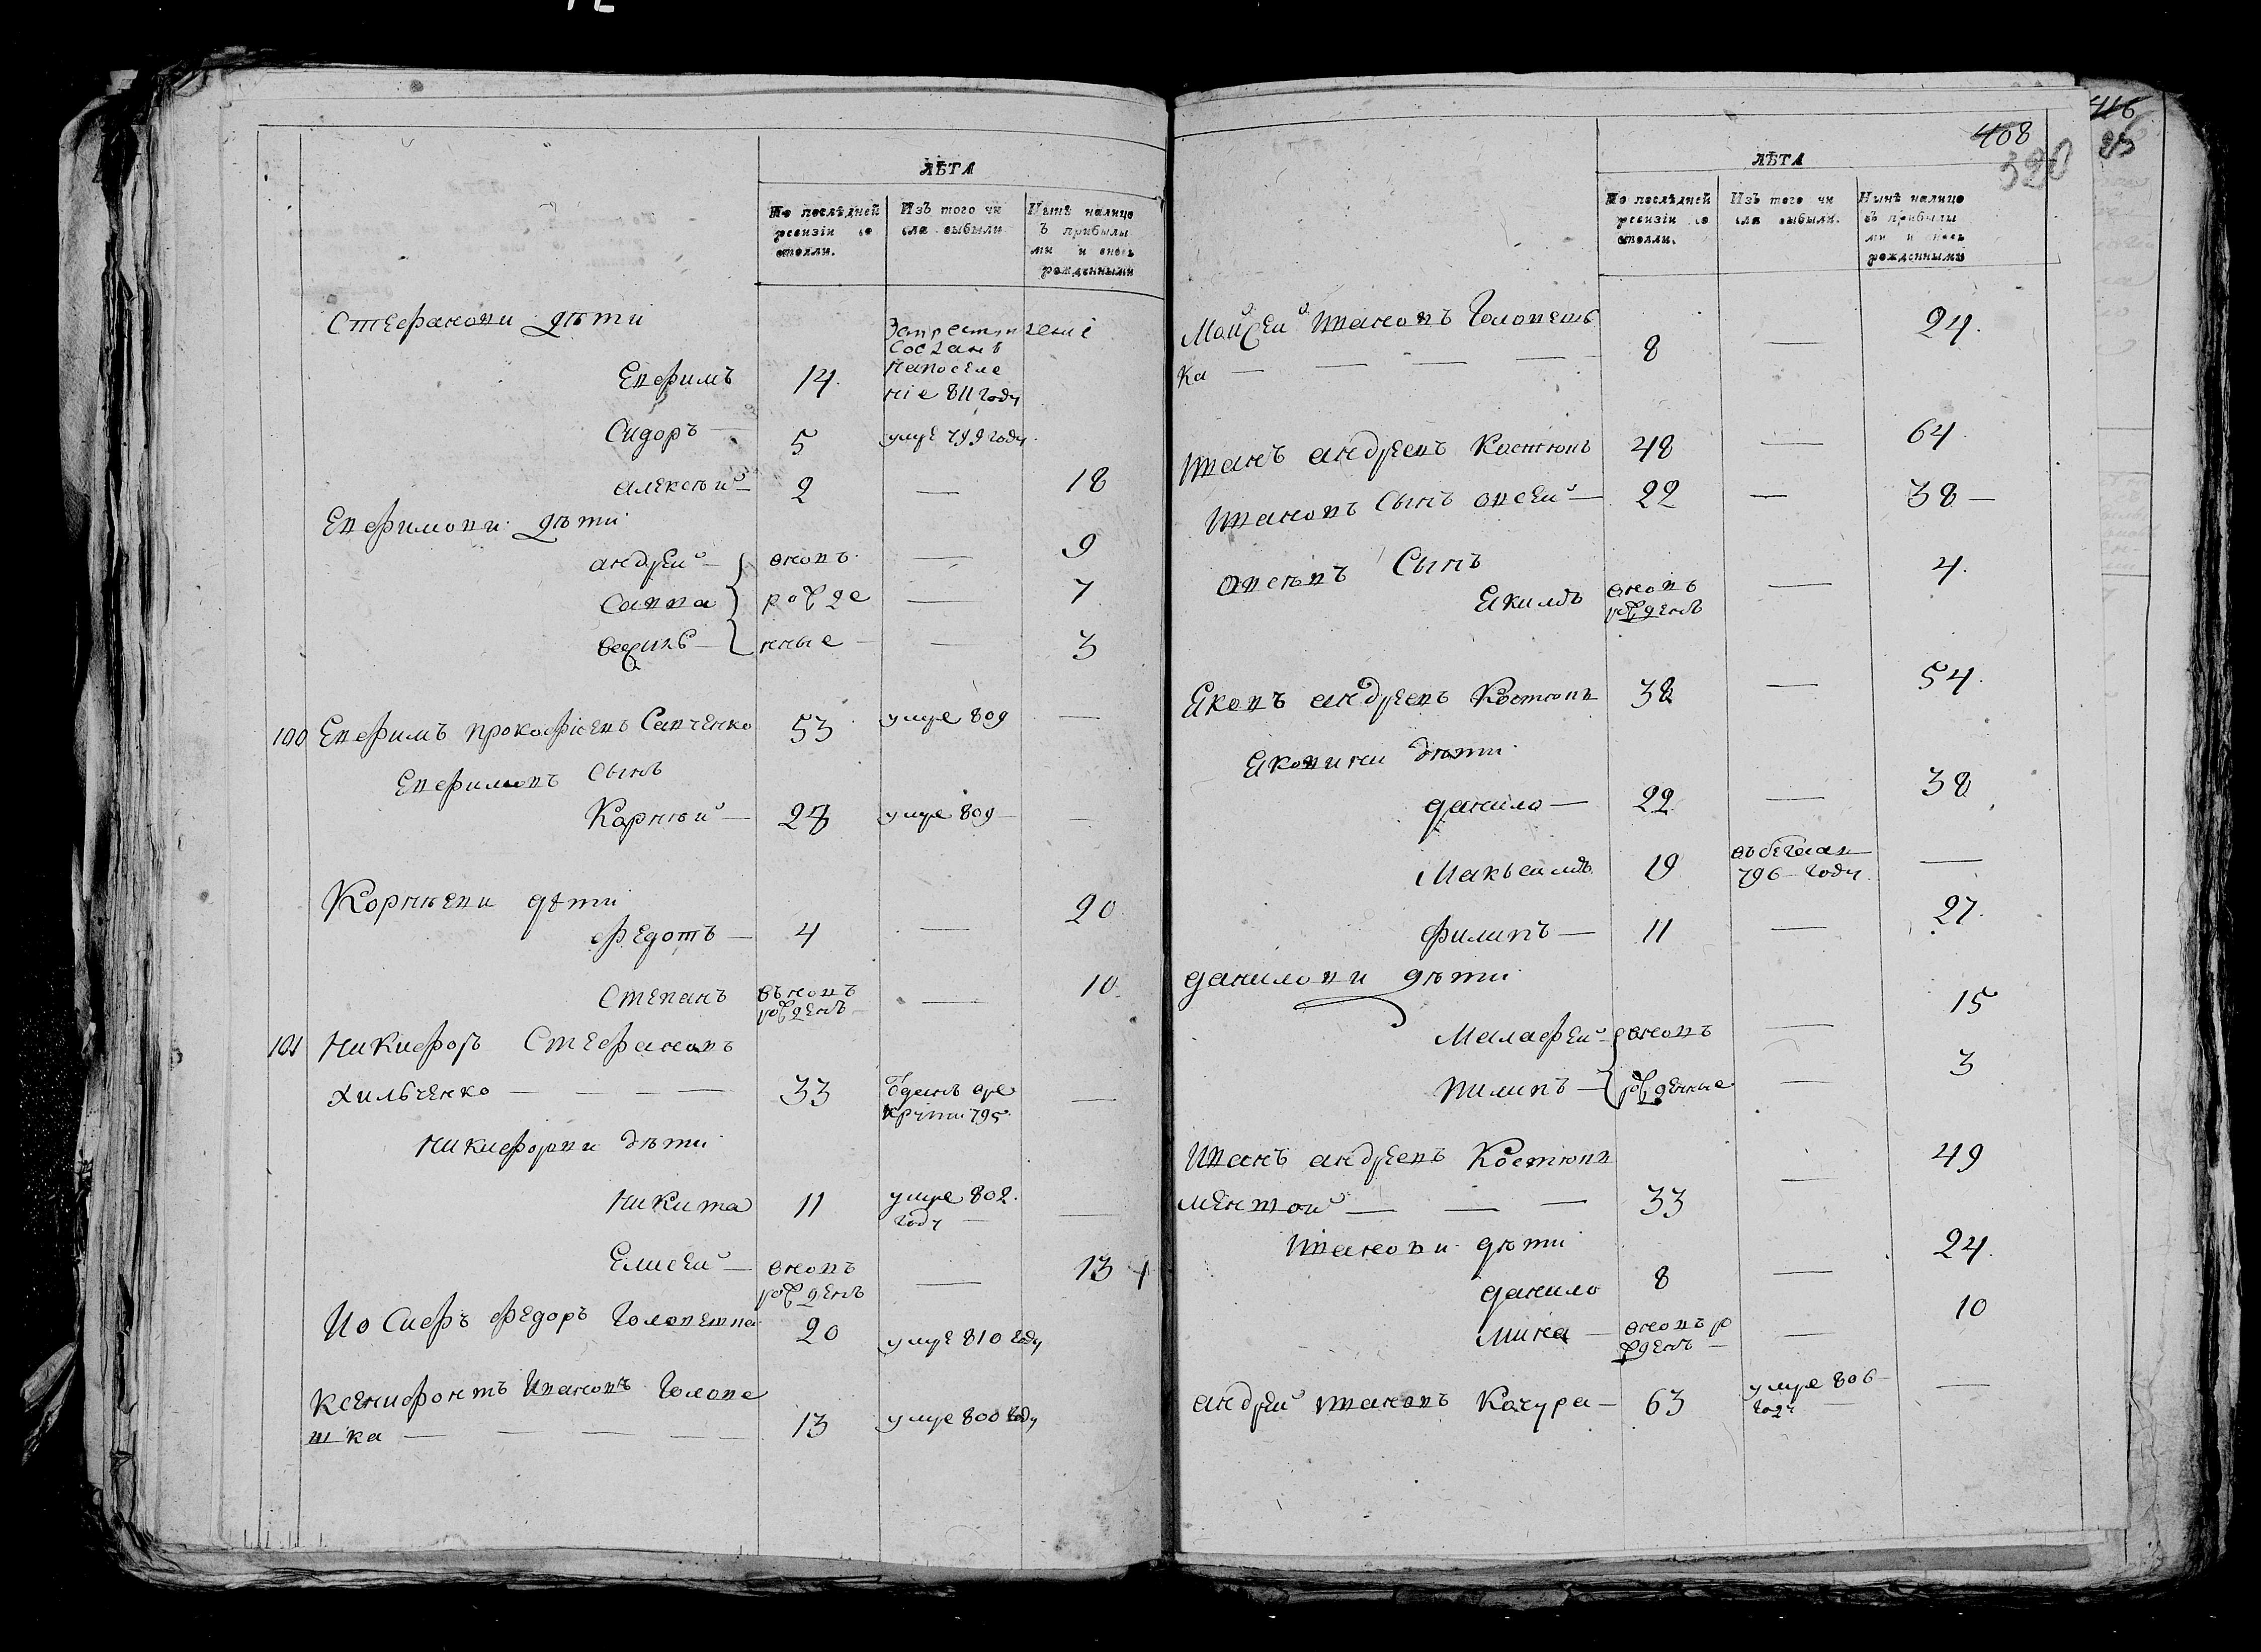 ЛѢТА
По послѣдней ревизіи со стояли.
Изъ того чи сла выбыли
Нынѣ налицо Ъ прибылы ми и вновь рожденными
Стефанови дѣти
Евфимъ 14. Сосланъ
напоселе
ніе 811 году
Сидоръ — 5 умре 799 году.
алексѣй — 2 — 18
Евфимови дѣти
андрей — вновъ — 9
Савва рожде — 7
нные — — 3
100 Евфимъ прокофіевъ Савченко 53 умре 809 —
Евфимовъ сынъ
Корнѣй — 28 умре 809 — —
Корнѣеви дѣти
федотъ — 4 — 20
Степанъ вновъ — 10
рожденъ —
101 Никифоръ Стефановъ
Хильченко — — — — 33 —
795
Никифорви дѣти
Никита 11 умре 802. —
году —
Елисей — вновъ — 13
рожденъ
Иосифъ федоръ 20 умре 810 году
Ксенифонтъ Ивановъ Голопе
шка — — — — — 13 умре 800 году
408
320
416
25
ЛѢТА
По послѣдней ревизіи со стояли.
Изъ того чи сла выбыли.
Нынѣ налицо ъ прибылы ми и вновь рожденными
Мойсей Ивановъ 8 — 24.
ка — — — —
Иванъ андреевъ Костювъ 48 — 64.
Ивановъ Сынъ овсей — 22 — 38 —
овсѣвъ Сынъ
Екимъ вновъ — 4.
рожденъ
Яковъ андреевъ Костювъ 38 — 54.
Яковини дѣти
данило — 22 — 38
Максимъ 19 въ бегахъ —
796 году.
филипъ — 11 — 27.
данилови дѣти
Малафей — вновъ — 15
пилипъ — рожденные — 3
Иванъ андреевъ Костювъ — 49
меншой — — — 33
Иванови дѣти
данило 8 — 24.
Мина — вновъ ро — 10
жденъ —
андрей Ивановъ Качура — 63 умре 806 —
году